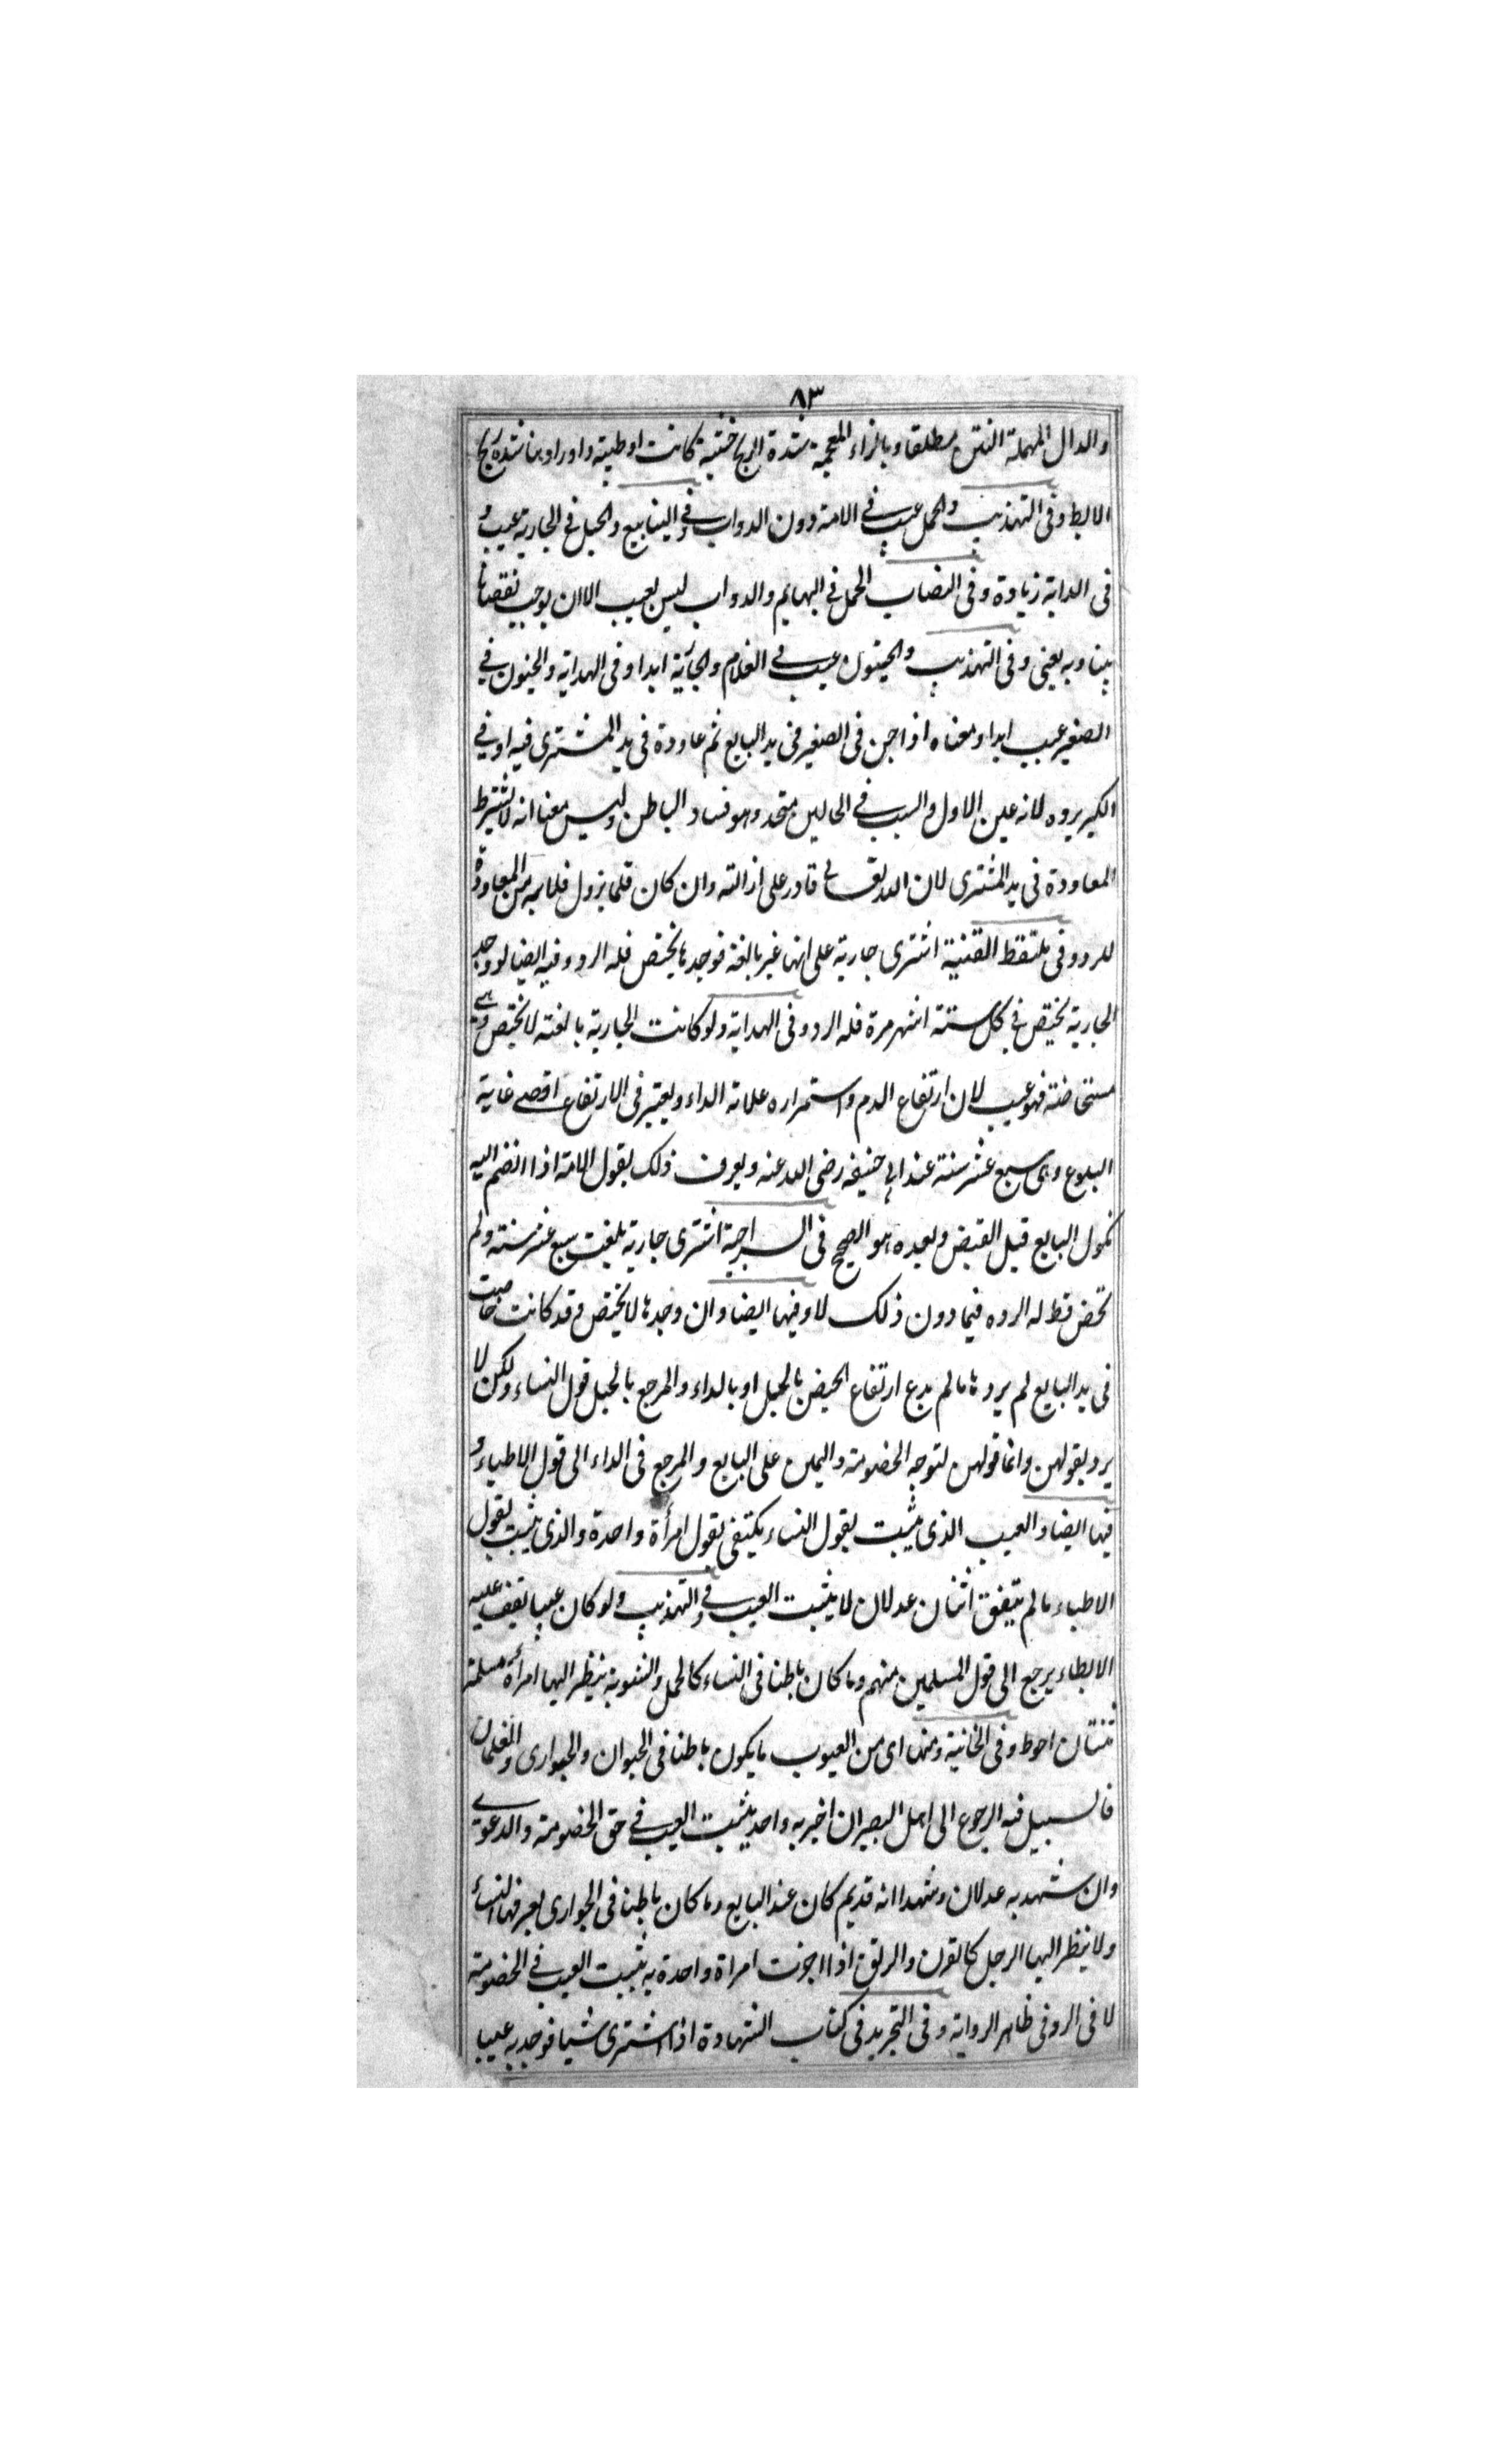 ٨٣
والدال المهملة النتن مطلقا وبالزاء المعجمة شدة الريح خشبة كانت او طيبة واوراد بنا شدة ريح
الابط وفى التهذيب والحمل عيب فى الامة دون الدواب وفى الينابيع والحبل فى الجارية عيب و
فى الداية زيادة وفى النصاب الحمل فى البهايم والدواب ليس بعيب الا ان يوجب نقصانا
بينا وبه يفتى وفى التهذيب والجنون عيب فى الغلام والجارية ابدا وفى الهداية والجنون فى
الصغير عيب ابدا ومعناه اذا جن فى الصغير فى يد البايع ثم عاودة فى يد المشترى فيه او فى
الكبير يرده لانه عين الاول والسبب فى الحالين متحد وهو فساد الباطن وليس معنا انه لا يشترط
المعاودة فى يد المشترى لان الله تعالى قادر على ازالته وان كان قلما يزول فلا بد من المعاودة
للرد وفى ملتقط القنية اشترى جارية على انها غير بالغة فوجدها تحيض فله الرد وفيه ايضا لو وجد
الجارية تحيض فى كل ستة اشهر مرة فله الرد وفى الهداية ولو كانت الجارية بالغة لا تحيض وهى
مستحاضة فهو عيب لان ارتفاع الدم واستمراره علامة الداء ويعتبر فى الارتفاع اقصى غاية
البلوغ وهى سبع عشر سنة عند ابى حنيفه رضى الله عنه ويعرف ذلك بقول الامة اذا انضم اليه
نكول البايع قبل القبض وبعده هو الصحيح فى السراجية اشترى جارية بلغت سبع عشر سنة ولم
تحض قط له الرد فيما دون ذلك لا وفيها ايضا وان وجدها لا تحيض وقد كانت حاضت
فى يد البايع لم يردها ما لم يدع ارتفاع الحيض بالحبل او بالداء والمرجع بالحبل قول النساء ولكن لا
يرد بقولهن وانما قولهن لتوجه الخصومة واليمين على البايع والمرجع فى الداء الى قول الاطباء و
فيها ايضا والعيب الذى يثبت بقول النساء يكتفى بقول امرأة واحدة والذى يثبت بقول
الاطباء ما لم يتفق اثنان عدلان لا يثبت العيب وفى التهذيب ولو كان عيبا يقف عليه
الابطاء يرجع الى قول المسلمين منهم وما كان باطنا فى النساء كالحمل والثيوبة ينظر اليها امرأة مسلمة
ثنتان احوط وفى الخانية ومنها اى من العيوب ما يكون باطنا فى الحيوان والجوارى والغلمان
فالسبيل فيه الرجوع الى اهل البصر ان اخبر به واحد يثبت العيب فى حق الخصومة والدعوى
وان شهد به عدلان وشهدا انه قديم كان عند البايع وما كان باطنا فى الجوارى يعرفها النساء
ولا ينظر اليها الرجل كالقرن والرتق اذا اخبرت امراة واحدة به يثبت العيب فى الخصومة
لا فى الرد فى ظاهر الرواية وفى التجريد فى كتاب الشهادة اذا اشترى شيا فوجد به عيبا